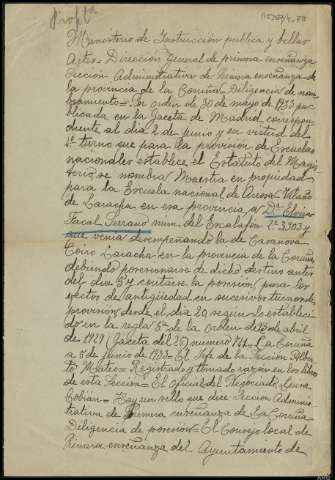 Ministerio de Instrucción publica y bellas
Artes = Dirección General de primera enseñanza
Sección Administrativa de primera enseñanza de
la provincia de la Coruña Diligencia de nom-
bramiento = Por orden de 30 de mayo de 1933 pu-
blicada en la Gaceta de Madrid correspon-
diente al día 2 de junio y en virtud del
1er turno que para la provisión de Escuelas
nacionales establece el Estatuto del Magis-
terio se nombra Maestra en propiedad
para la Escuela nacional de Vilaño
de Laracha en esa provincia a Dª
num. del Escalafón 2º 3.303 y
que venia desempeñando la de Casanova
Coiro Laracha en la provincia de la Coruña
debiendo posesionarse de dicho destino antes
del dia 5 y contarse la posesión para los
efectos de antigüedad en sucesivos turnos de
provisión desde el dia 20 según lo estableci-
do en la regla 5ª de la Orden de 15 de abril
de 1929 (Gaceta del 25) número 741. La Coruña
a 5 de junio de 1933 = El Jefe de la Sección
Mateo = Registrado y tomado razón en los libros
de esta Sección = El Oficial del Negociado
Cobián = Hay un sello que dice Sección Adminis-
trativa de Primera enseñanza de La Coruña
Diligencia de posesión = El Consejo local de
Primera enseñanza del Ayuntamiento de